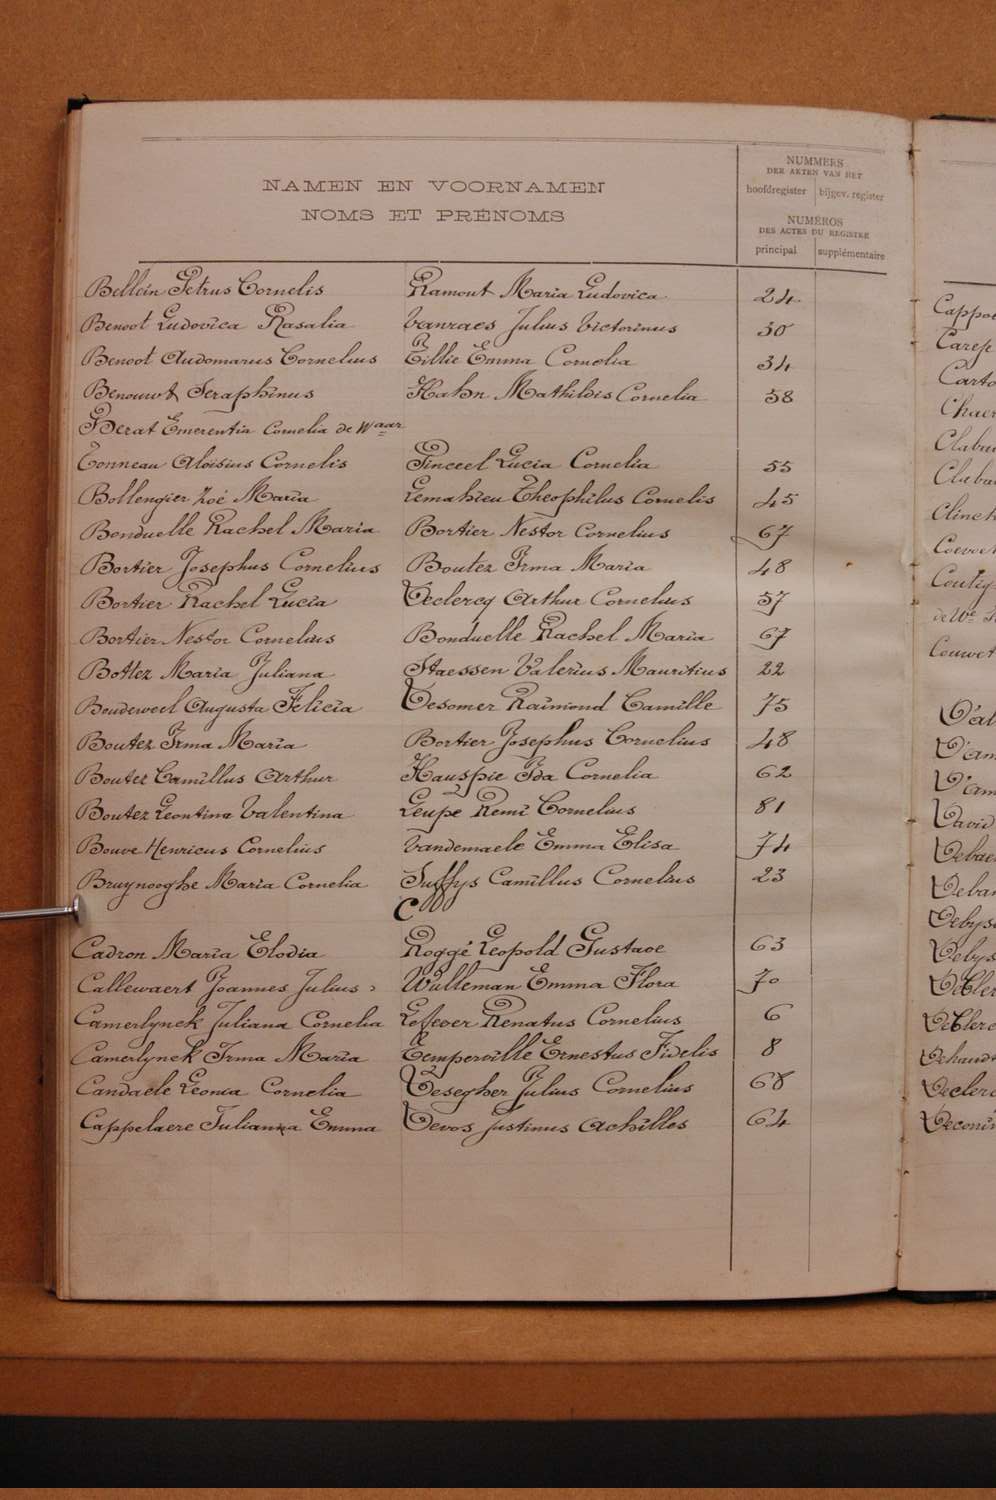 NAMEN EN VOORNAMEN
NOMS ET PRÉNOMS
NUMMERS
DER AKTEN VAN HET
hoofdregister bijgev. register
NUMÉROS
DES ACTES DU REGISTRE
principal supplémentaire
Bellein Petrus Cornelis Ramont Maria Ludovica 24
Benoot Ludovica Rosalia Vanraes Julius Victorinus 30
Benoot Audomarus Cornelius Tillie Emma Cornelia 34
Benouwt Seraphinus Hahn Mathildis Cornelia 58
Berat Emerentia Cornelia de Waar
Tonneau Aloïsius Cornelis Pinceel Lucia Cornelia 55
Bollengier Zoé Maria Lemahieu Theophilus Cornelis 45
Bonduelle Rachel Maria Bortier Nestor Cornelius 67
Bortier Josephus Cornelius Boutez Irma Maria 48
Bortier Rachel Lucia Declercq Arthur Cornelius 57
Bortier Nestor Cornelius Bonduelle Rachel Maria 67
Bottez Maria Juliana Staessen Valerius Mauritius 22
Boudeweel Augusta Felicia Desomer Raimond Camille 75
Boutez Irma Maria Bortier Josephus Cornelius 48
Boutez Camillus Arthur Hauspie Ida Cornelia 62
Boutez Leontina Valentina Leupe Remi Cornelius 81
Bouve Henricus Cornelius Vandemaele Emma Elisa 74
Bruynooghe Maria Cornelia Suffys Camillus Cornelius 23
C
Cadron Maria Elodia Roggé Leopold Gustave 63
Callewaert Joannes Julius Wulleman Emma Flora 70
Camerlynck Juliana Cornelia Lefever Renatus Cornelius 6
Camerlynck Irma Maria Temperville Ernestus Fidelis 8
Candaele Leonia Cornelia Desegher Julius Cornelius 68
Cappelaere Julianna Emma Devos Justinus Achilles 64